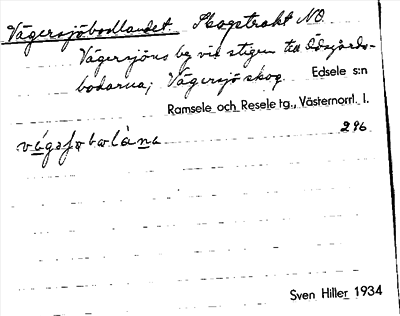 Vägersjöbodlandet. Skogstrakt NO
Vägersjöns by vid stigen till Ödsgårds-
bodarna; Vägersjö skog Edsele s:n
Ramsele och Resele tg., Västernorrl. l.
296
Sven Hiller 1934